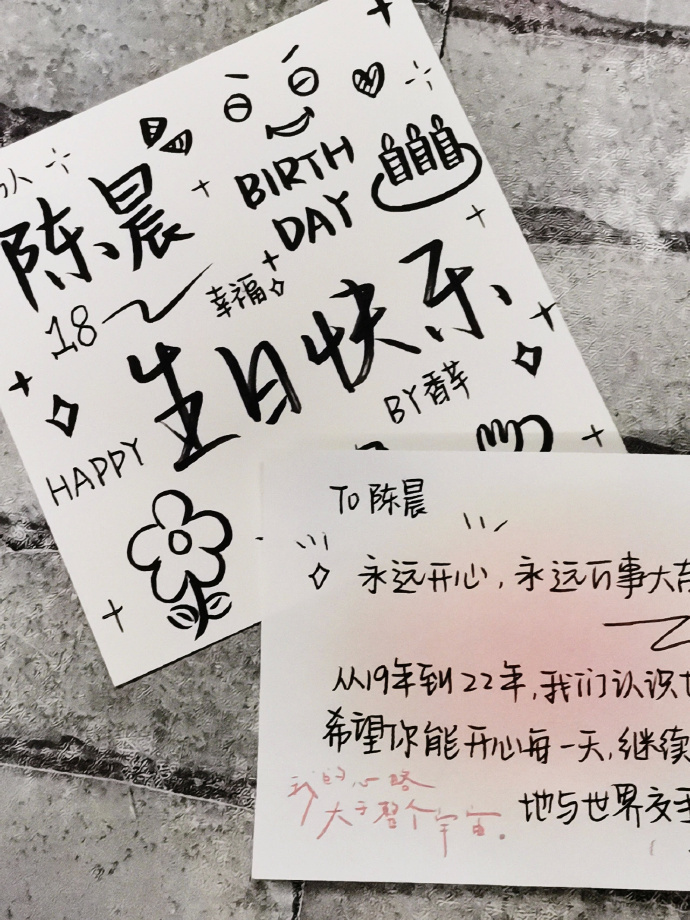 人
陈晨
BIRTH
DAY
18
幸福
生日快乐
BY香芋
HAPPY
To 陈晨
永远开心,永远万事大吉
从19年到22年,我们认识
希望你能开心每一天,继续
地与世界交手
我的心路
大于整个宇宙。